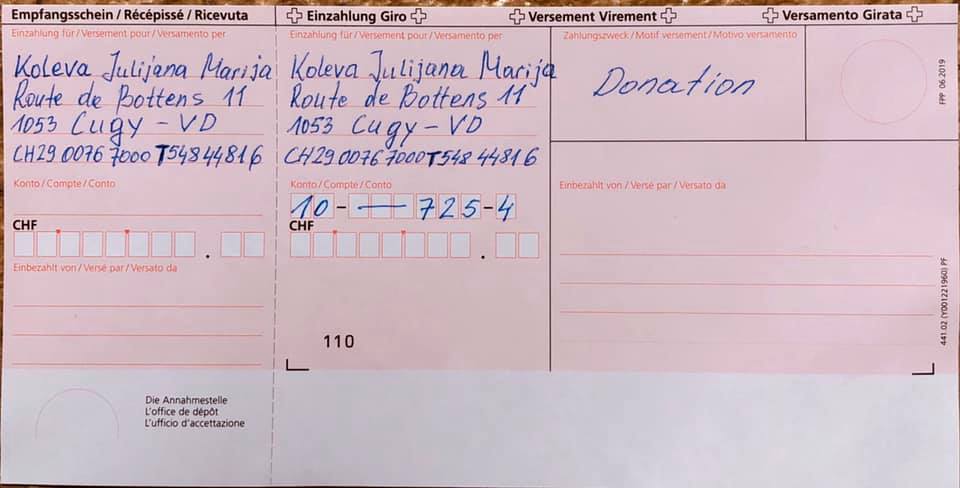 Empfangsschein / Récépissé / Ricevuta
Einzahlung für / Versement pour / Versamento per
Koleva Julijana Marija
Route de Bottens 11
1053 Cugy - VD
CH29 0076 7000 T548 4481 6
Konto / Compte / Conto
CHF
.
Einbezahlt von / Versé par / Versato da
Die Annahmestelle
L'office de dépôt
L'ufficio d'accettazione
Einzahlung Giro
Versement Virement
Versamento Girata
Einzahlung für / Versement pour / Versamento per
Koleva Julijana Marija
Route de Bottens 11
1053 Cugy - VD
CH29 0076 7000 T548 4481 6
Konto / Compte / Conto
10 - — 725 - 4
CHF
.
110
Zahlungszweck / Motif versement / Motivo versamento
Donation
Einbezahlt von / Versé par / Versato da
FPP 06.2019
441.02 (Y001221960) PF